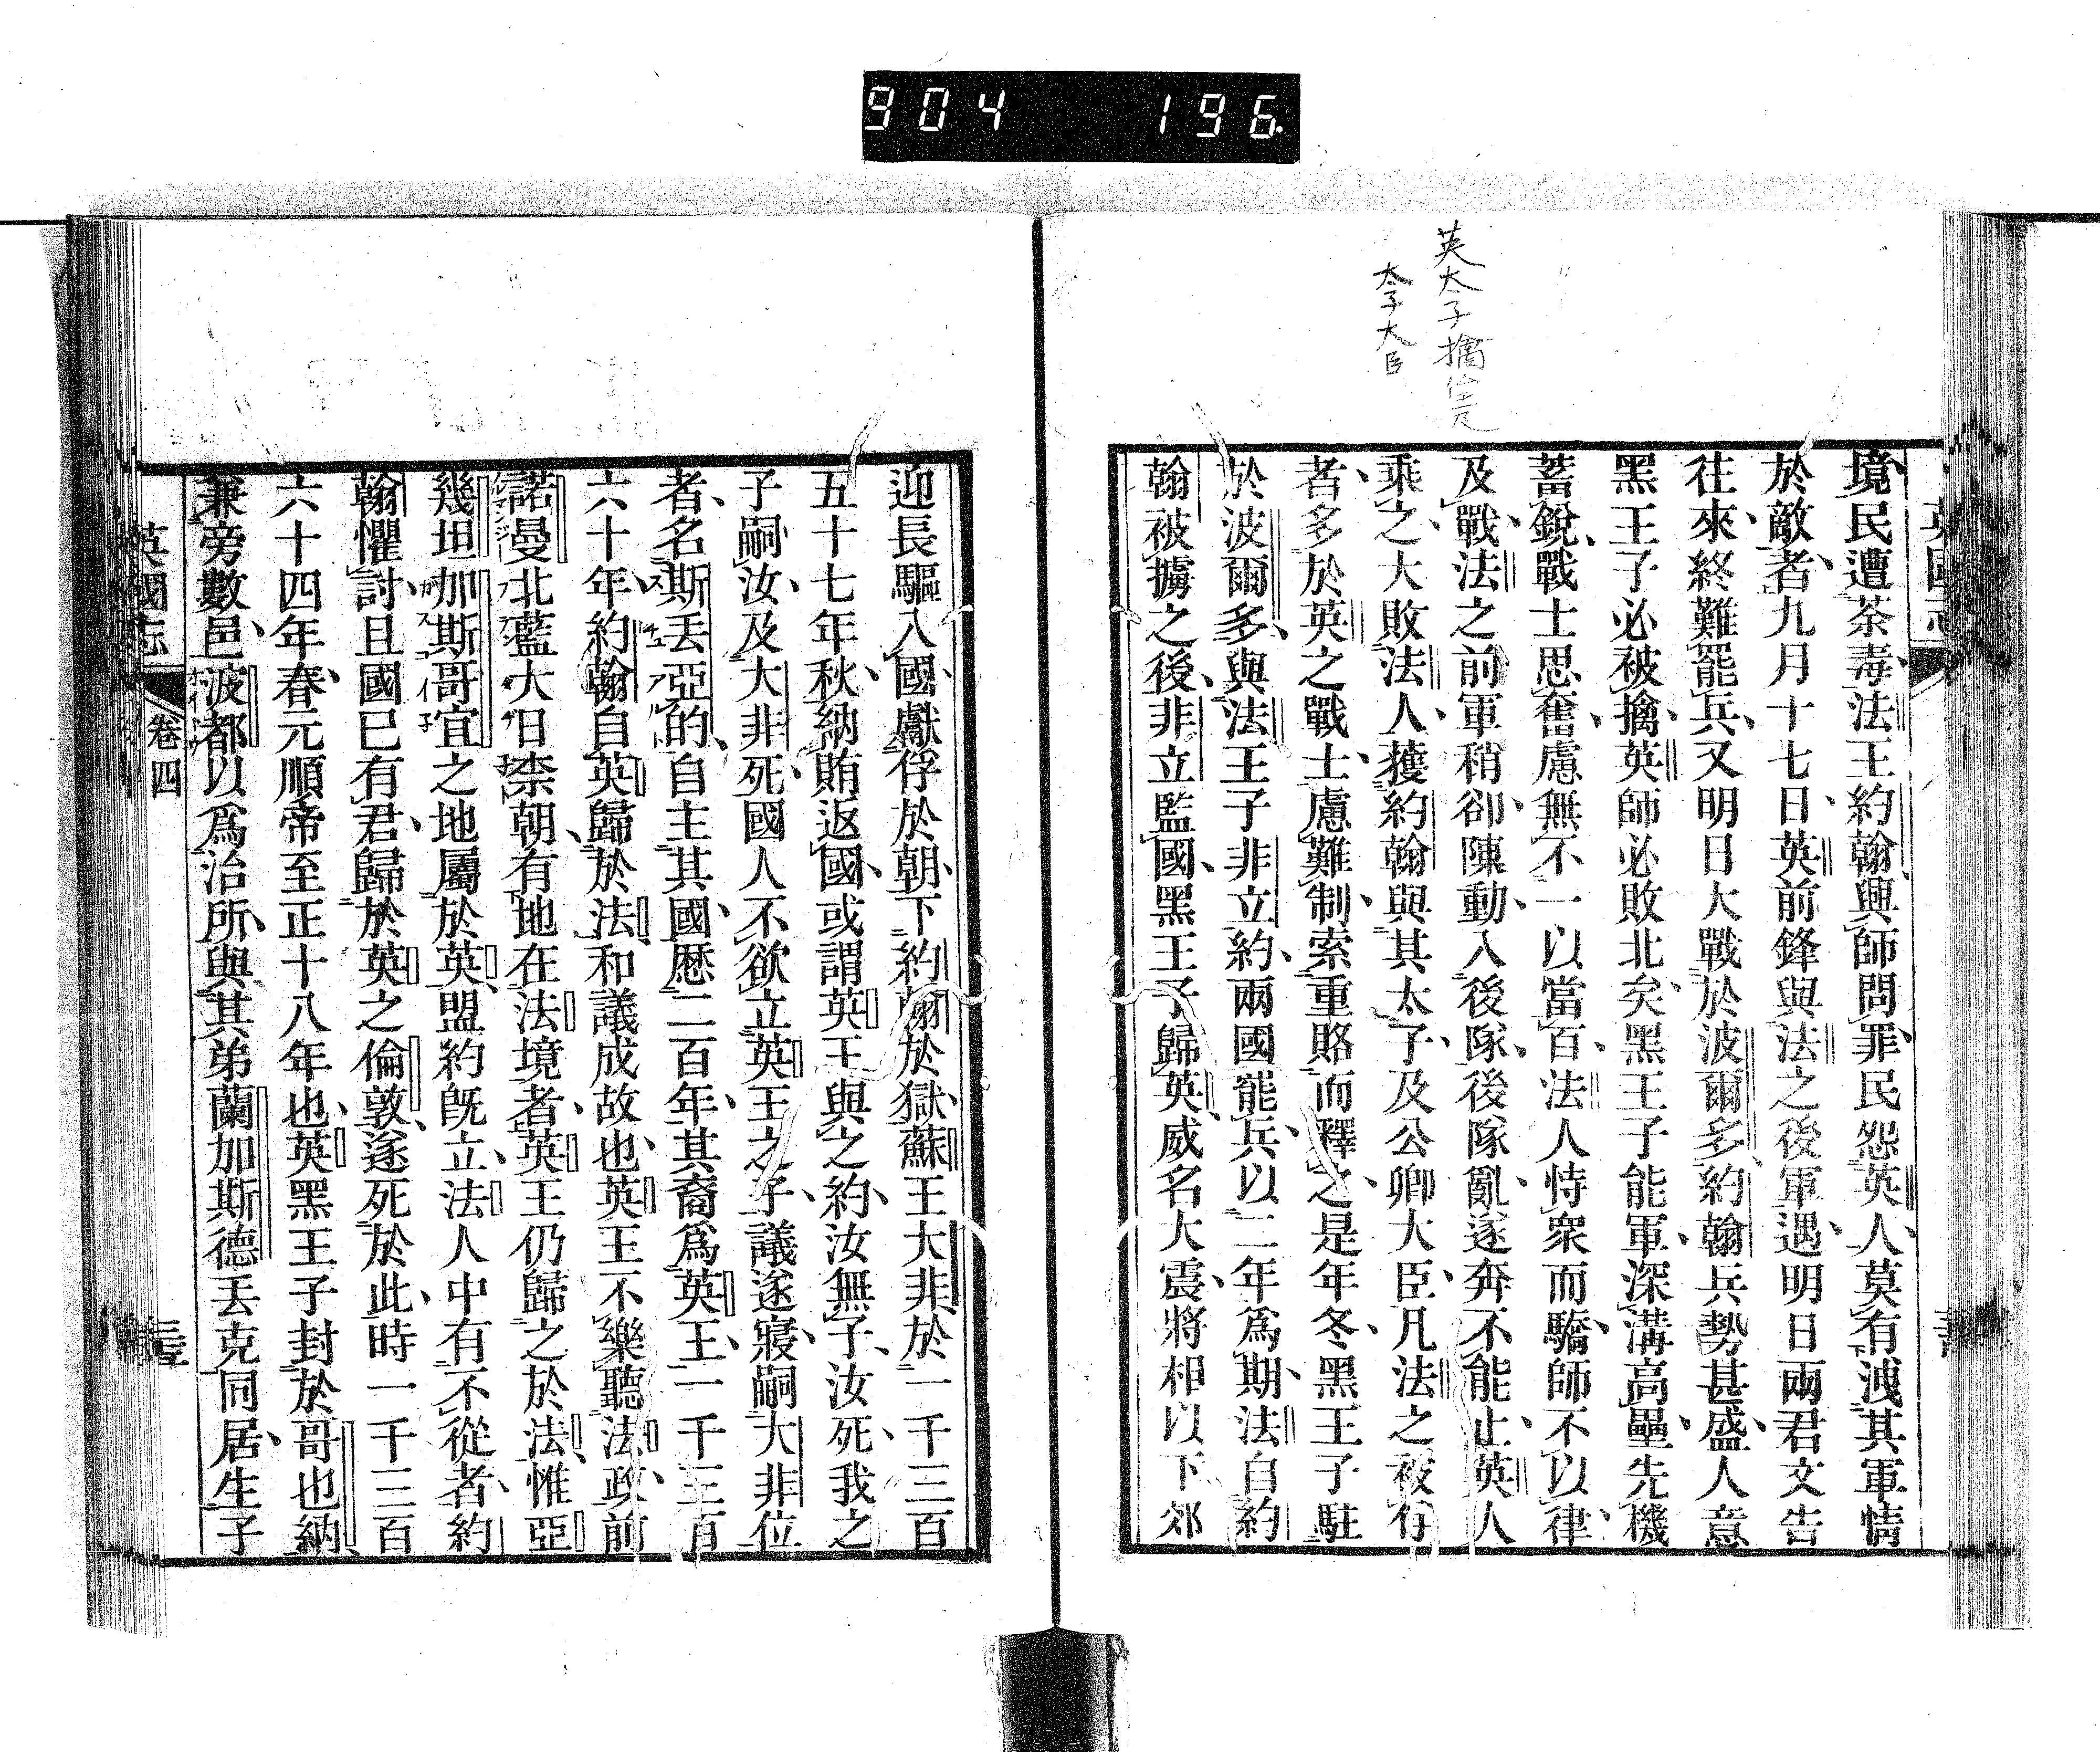 904 196
英太子擒
太子大臣
境民遭荼毒法王約翰興師問罪民怨英人莫有洩其軍情
於敵者九月十七日英前鋒與法之後軍遇明日兩君文告
往來終難罷兵又明日大戰於波爾多約翰兵勢甚盛人意
黑王子必被擒英師必敗北矣黑王子能軍深溝高壘先機
蓄銳戰士思奮慮無不一以當百法人恃衆而驕師不以律
及戰法之前軍稍卻陳動入後隊後隊亂遂奔不能止英人
乘之大敗法人獲約翰與其太子及公卿大臣凡法之被俘
者多於英之戰士慮難制索重賂而釋之是年冬黑王子駐
於波爾多與法王子非立約兩國罷兵以二年爲期法自約
翰被擄之後非立監國黑王子歸英威名大震將相以下郊
迎長驅入國獻俘於朝下約翰於獄蘇王大非於一千三百
五十七年秋納賄返國或謂英王與之約汝無子汝死我之
子嗣汝及大非死國人不欲立英王之子議遂寢嗣大非位
者名斯丟亞的自主其國歷二百年其裔爲英王一千三百
六十年約翰自英歸於法和議成故也英王不樂聽法政前
諾曼北藍大日柰朝有地在法境者英王仍歸之於法惟亞
幾坦加斯哥宜之地屬於英盟約旣立法人中有不從者約
翰懼討且國已有君歸於英之倫敦遂死於此時一千三百
六十四年春元順帝至正十八年也英黑王子封於哥也納
兼旁數邑波都以爲治所與其弟蘭加斯德丟克同居生子
英國志
卷四